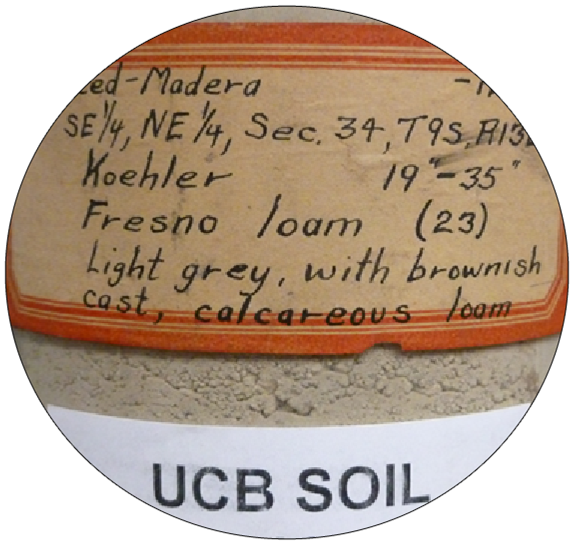 -Madera
SE 1/4, NE 1/4, Sec. 34, T9S, R13E
Koehler 19"-35"
Fresno loam (23)
Light grey, with brownish
cast, calcareous loam
UCB SOIL